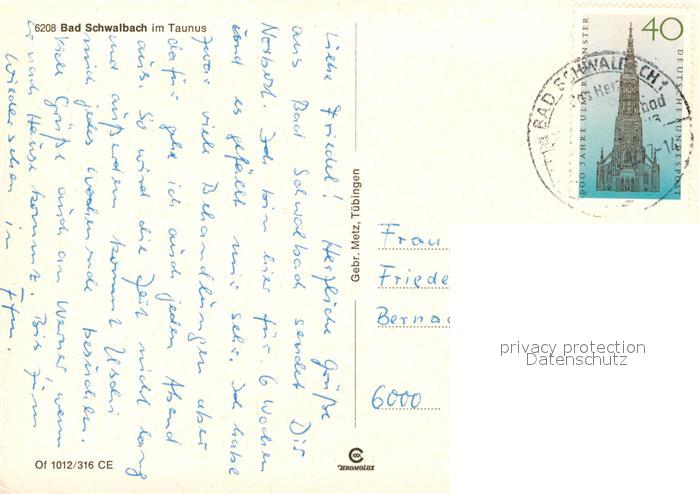 6208 Bad Schwalbach im Taunus
Liebe Friedel! Herzliche Grüße
aus Bad Schwalbach sendet Dir
Norbert. Ich bin hier für 6 Wochen
und es gefällt mir sehr. Ich habe
zwar viele Behandlungen aber
dafür geh ich auch jeden Abend
aus. So wird die Zeit nicht lang
und außerdem kommt Uschi
mich jedes Wochenende besuchen.
Viele Grüße auch an Werner wenn
er nach Hause kommt. Bis zum
Wiedersehen in Ffm.
Of 1012/316 CE
Gebr. Metz, Tübingen
CHROMOLUX
40
600 JAHRE ULMER MÜNSTER
DEUTSCHE BUNDESPOST
1977
BAD SCHWALBACH 1
Frau
Friede
Berna
6000
privacy protection
Datenschutz